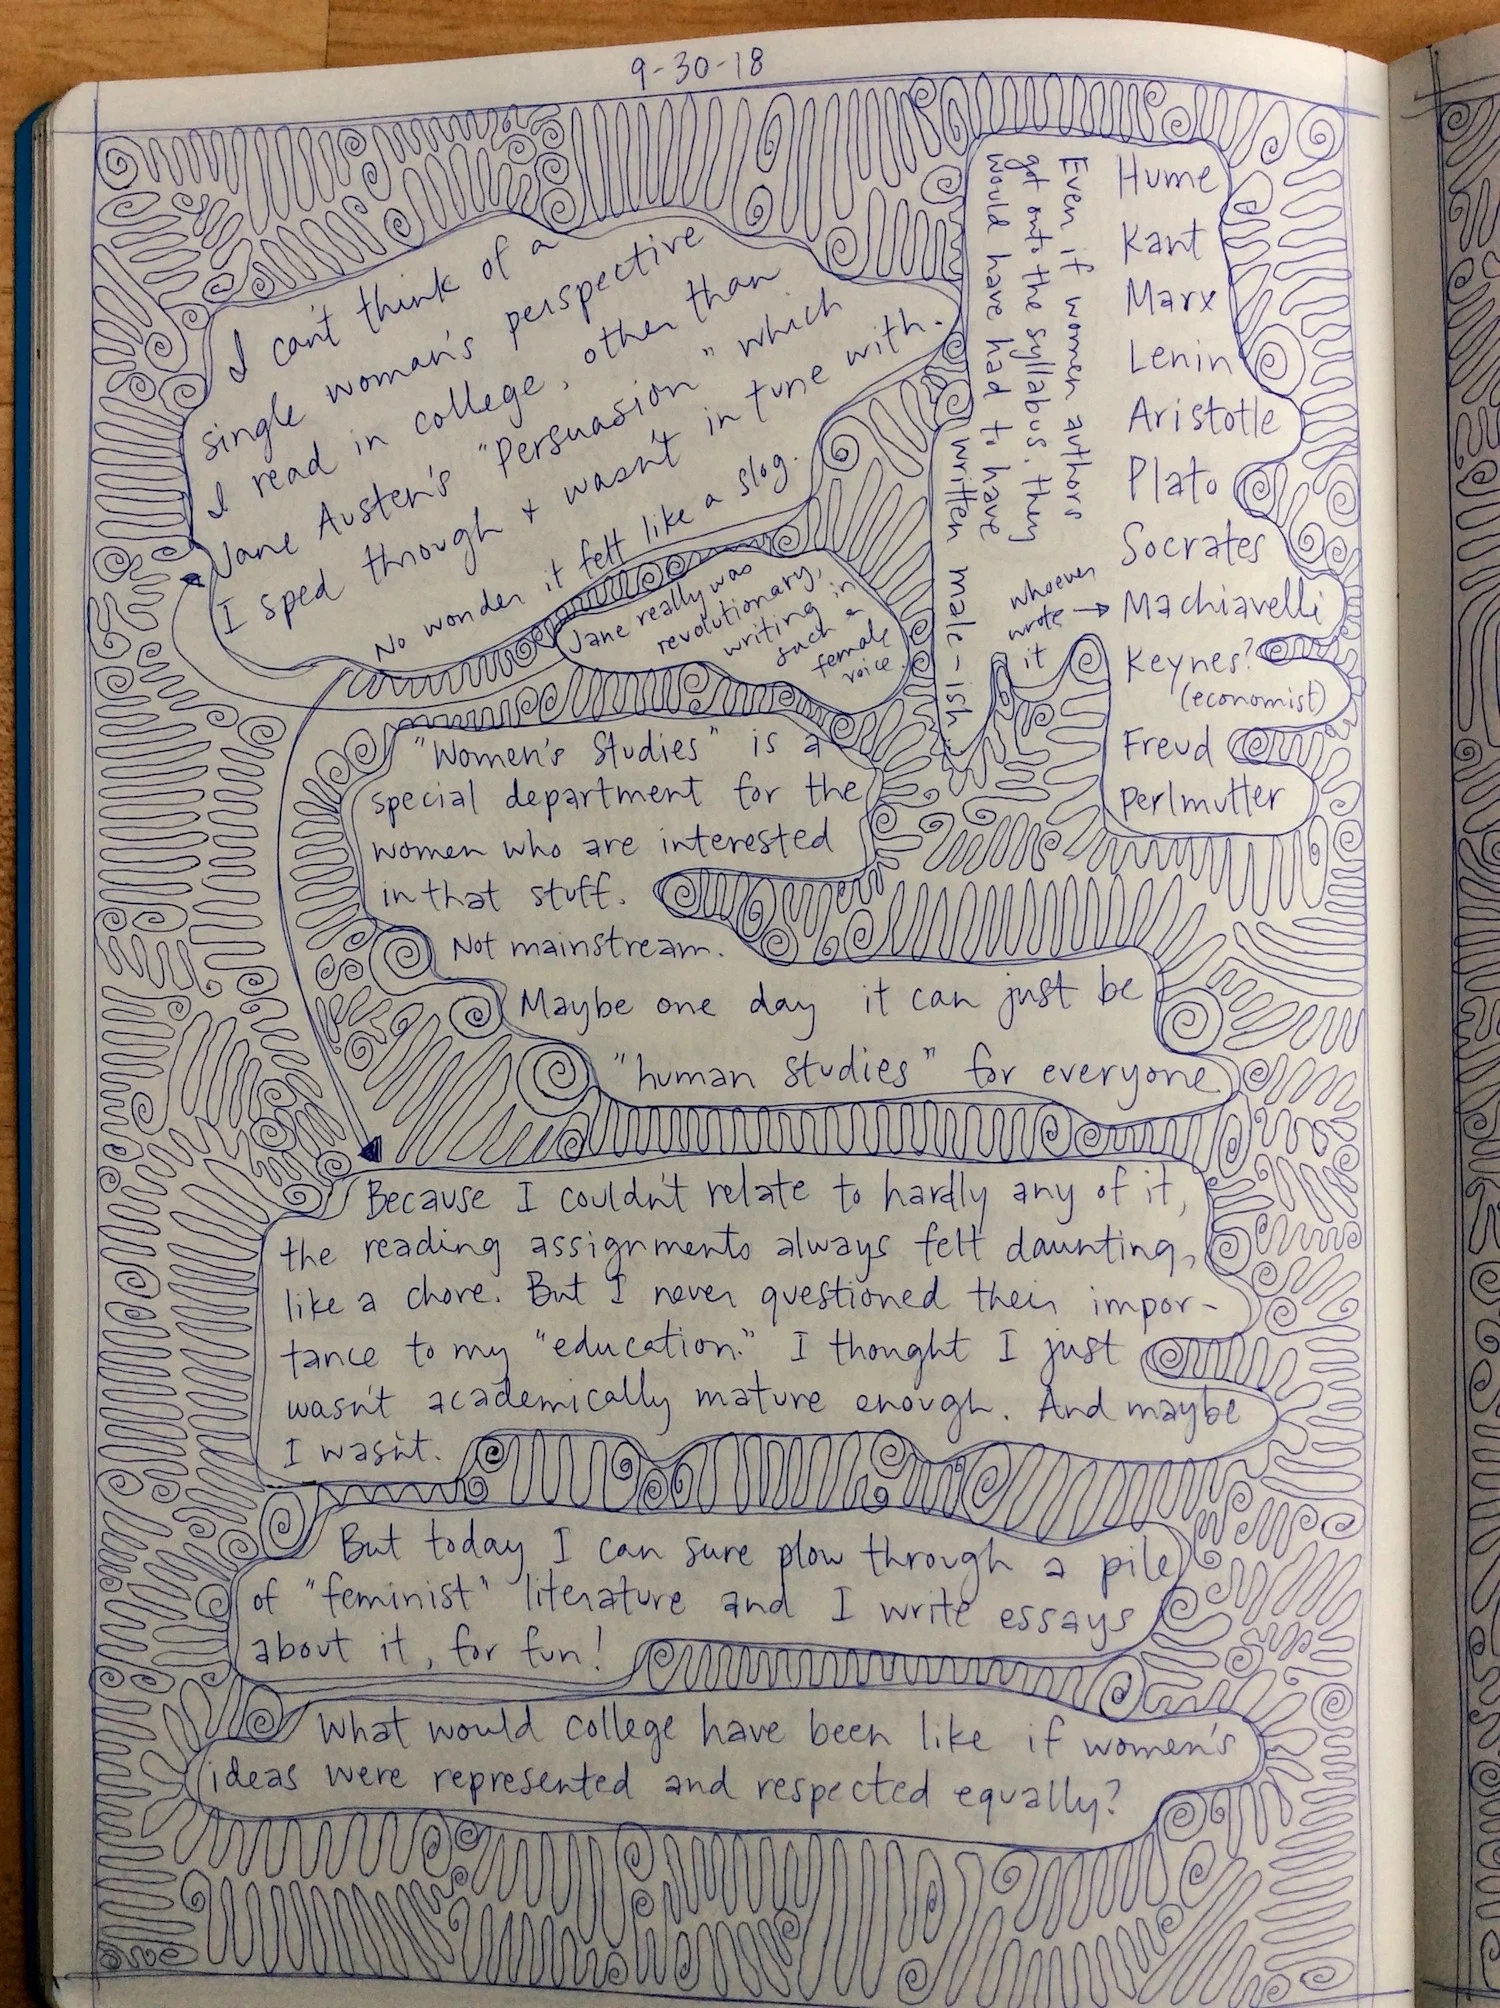 9-30-18
I can't think of a
single woman's perspective
I read in college, other than
Jane Austen's "Persuasion" which
I sped through & wasn't in tune with.
No wonder it felt like a slog.
Jane really was
revolutionary,
writing in
such a
female
voice.
Even if women authors
got onto the syllabus, they
would have had to have
written male-ish.
Hume
Kant
Marx
Lenin
Aristotle
Plato
Socrates
whoever
wrote →
it
Machiavelli
Keynes?
(economist)
Freud
Perlmutter
"Women's Studies" is a
special department for the
women who are interested
in that stuff.
Not mainstream.
Maybe one day it can just be
"human studies" for everyone.
Because I couldn't relate to hardly any of it,
the reading assignments always felt daunting,
like a chore. But I never questioned their impor-
tance to my "education." I thought I just
wasn't academically mature enough. And maybe
I wasn't.
But today I can sure plow through a pile
of "feminist" literature and I write essays
about it, for fun!
What would college have been like if women's
ideas were represented and respected equally?